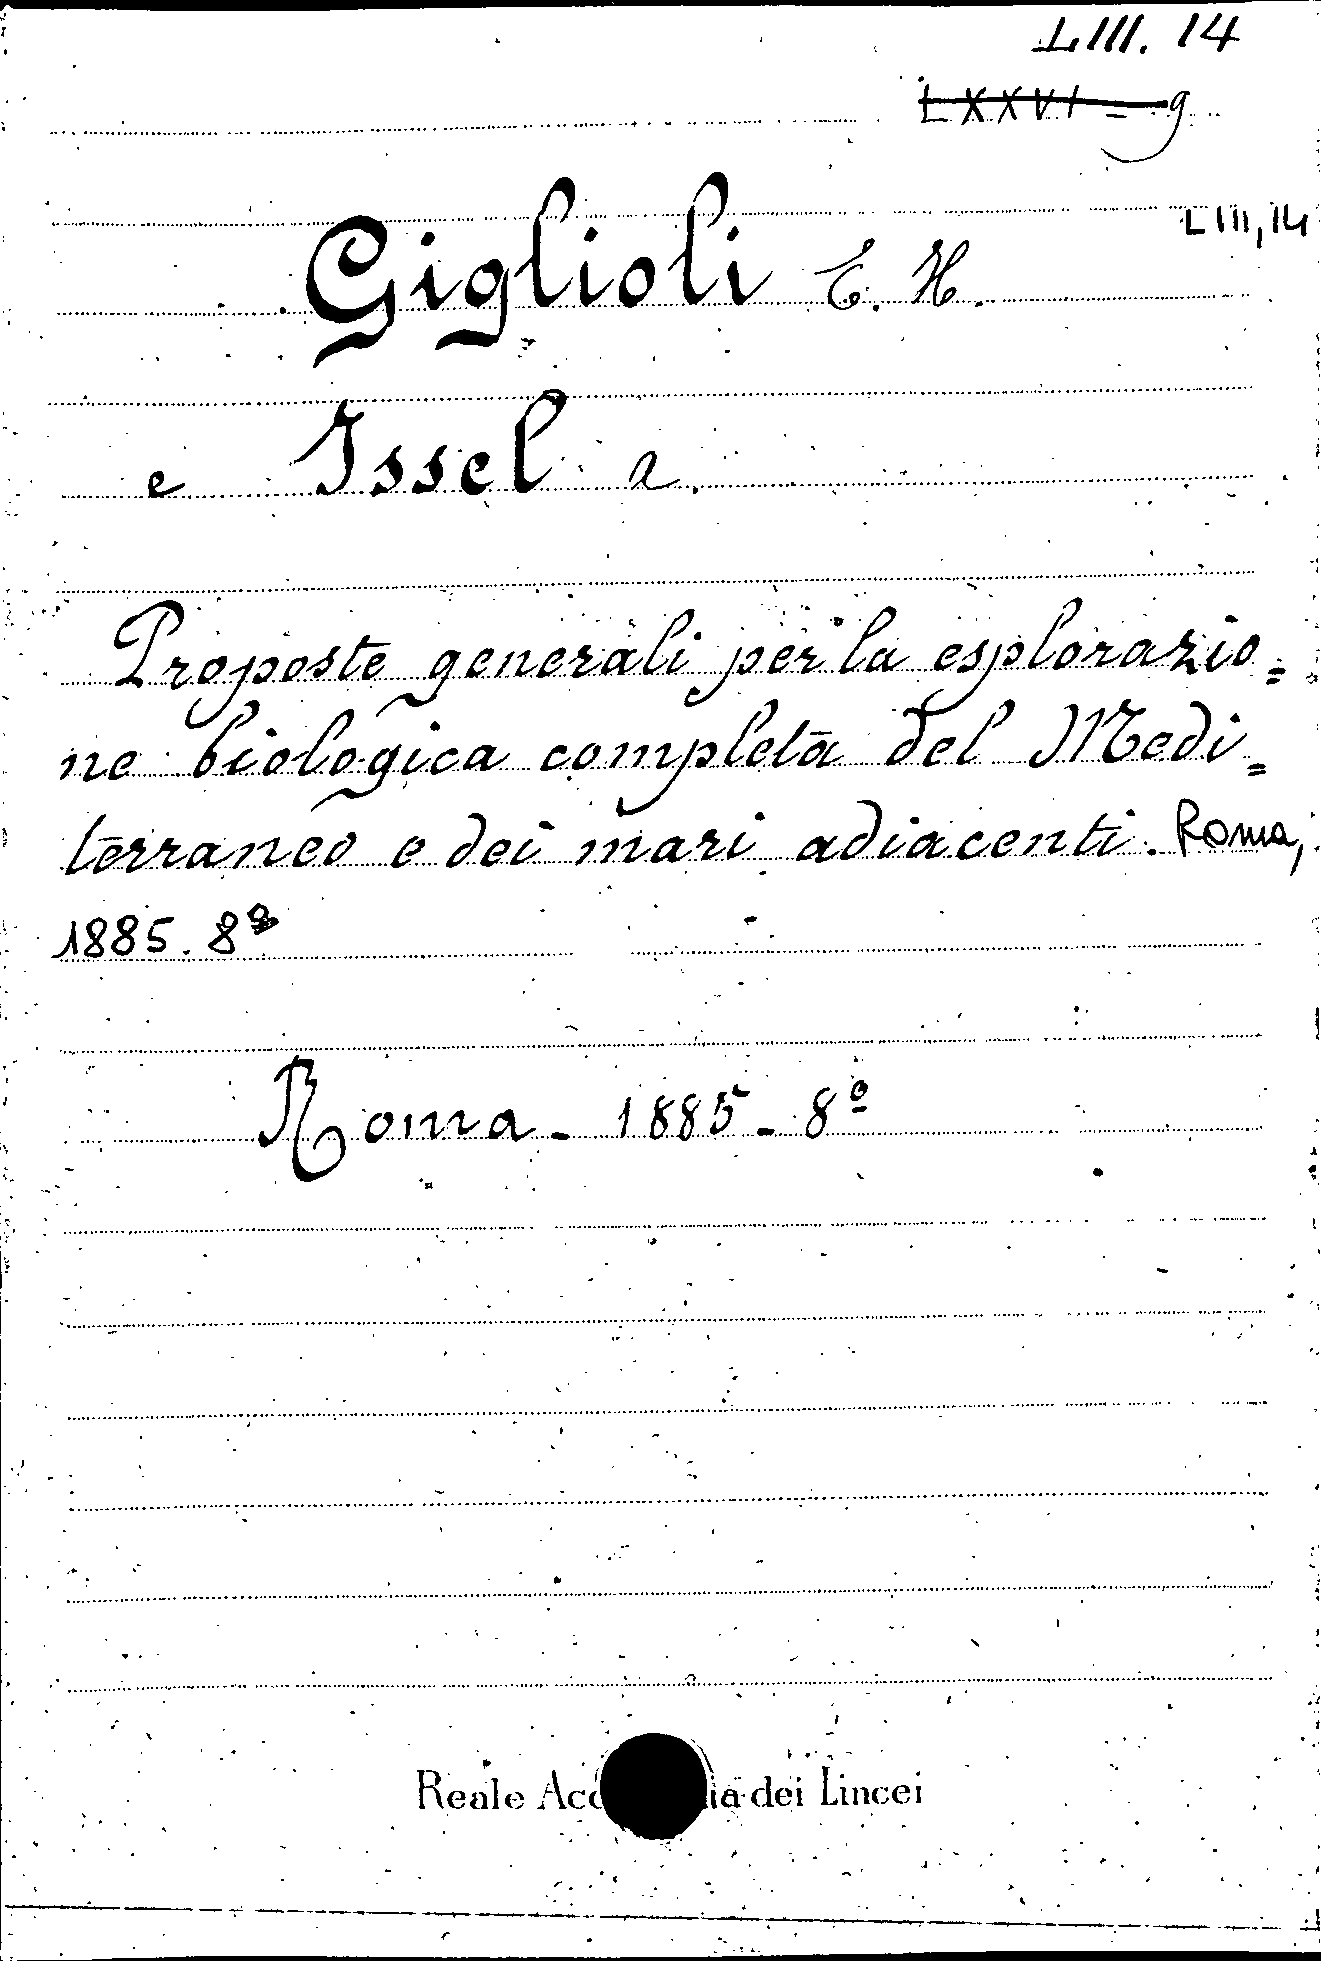 LIII. 14
LXXVI = 9
LIII, 14
Giglioli E. H.
e Issel A.
Proposte generali per la esplorazio=
ne biologica completa del Medi=
terraneo e dei mari adiacenti. Roma,
1885. 8º
Roma - 1885 - 8º
Reale dei Lincei